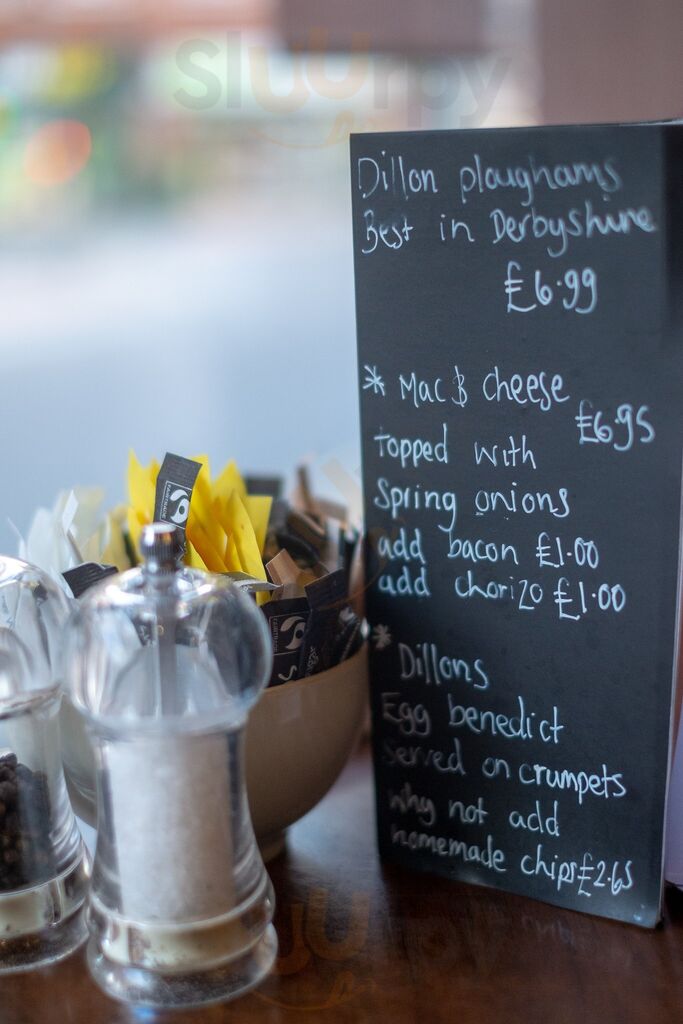 Sluurpy
Dillon ploughams
Best in Derbyshire
£6.99
* Mac & cheese
£6.95
topped with
Spring onions
add bacon £1.00
add chorizo £1.00
* Dillons
Egg benedict
served on crumpets
why not add
homemade chips £2.65
FAIRTRADE
FAIRTRADE